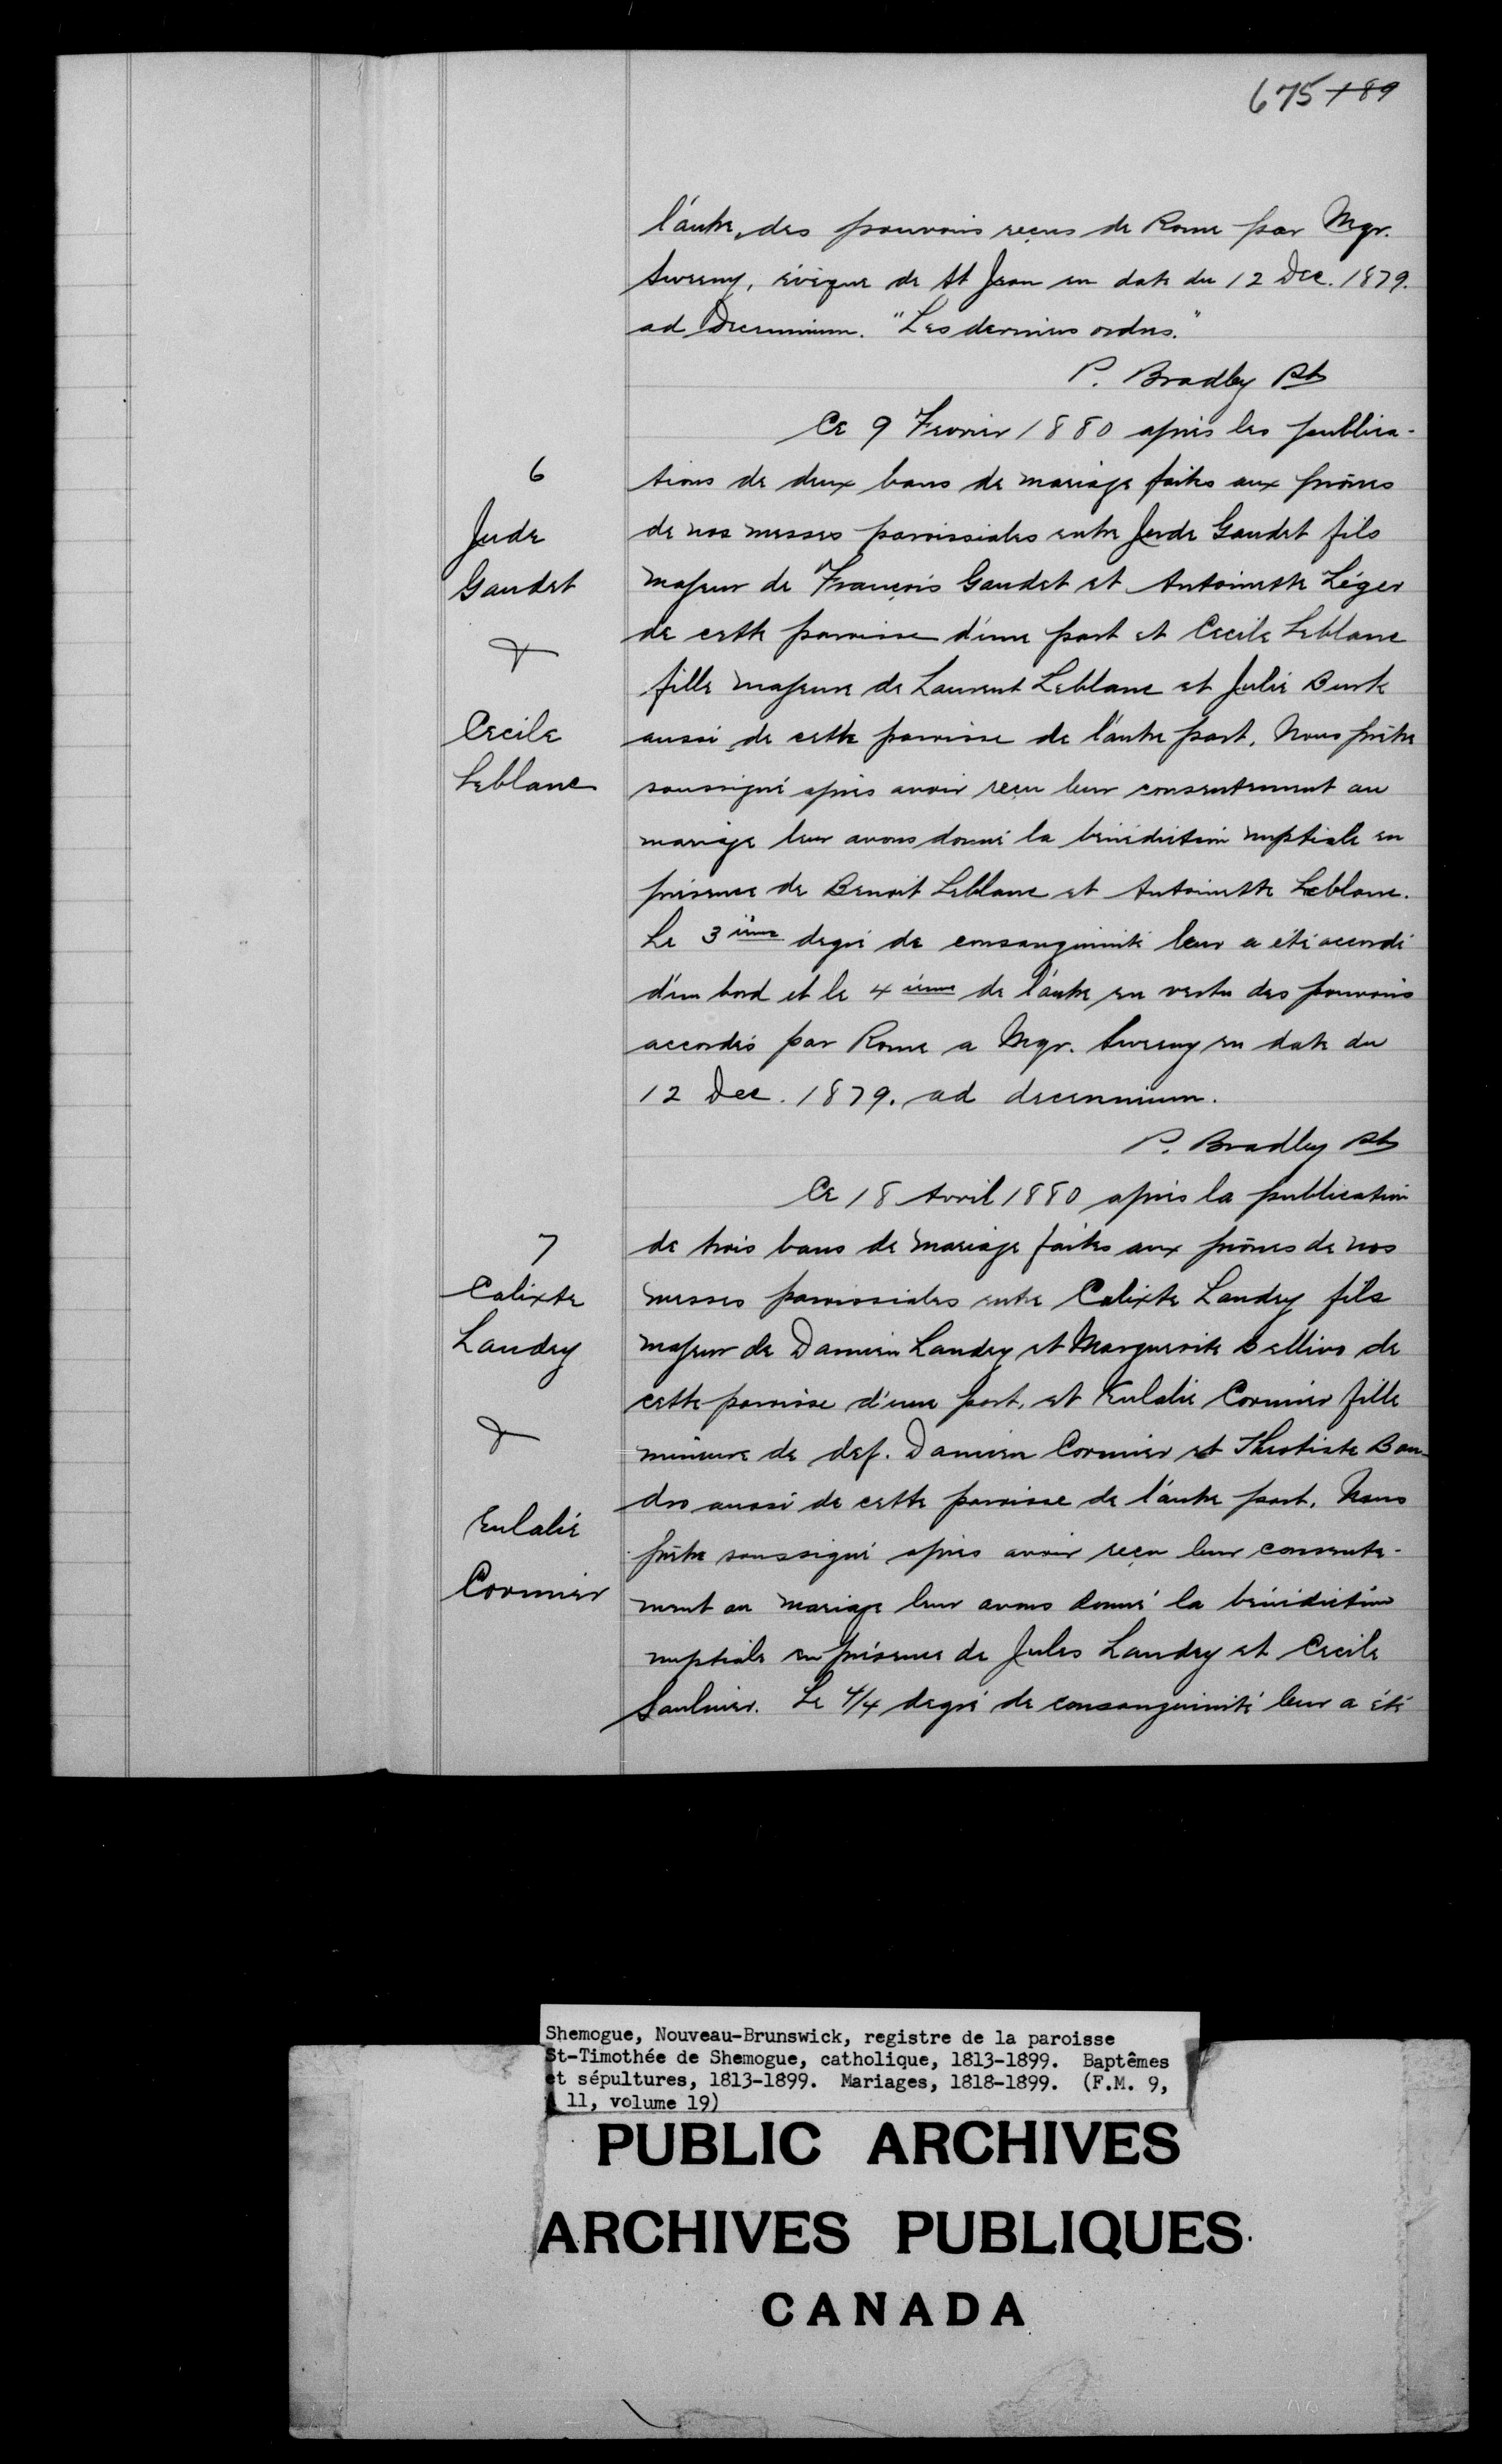 675 189
l'autre, des pouvoirs reçus de Rome par Mgr.
Sweeny, évèque de St Jean en date du 12 Dec. 1879.
ad Decennium. "Les derniers ordres."
P. Bradley Pt
Ce 9 Fevrier 1880 après les publica-
6
tions de deux bans de mariage faites aux prônes
Jude
de nos messes paroissiales entre Jude Gaudet fils
Gaudet
majeur de François Gaudet et Antoinette Léger
&
de cette paroisse d'une part et Cecile Leblanc
fille majeure de Laurent Leblanc et Julie Burk
Cecile
aussi de cette paroisse de l'autre part. Nous prêtre
Leblanc
soussigné après avoir reçu leur consentement au
mariage leur avons donné la bénédiction nuptiale en
présence de Benoit Leblanc et Antoinette Leblanc.
Le 3 ième degré de consanguinité leur a été accordé
d'un bord et le 4 ième de l'autre en vertu des pouvoirs
accordés par Rome a Mgr. Sweeny en date du
12 Dec. 1879. ad decennium.
P. Bradley Pt
Ce 18 Avril 1880 après la publication
7
de trois bans de mariage faites aux prônes de nos
Calixte
messes paroissiales entre Calixte Landry fils
Landry
majeur de Damien Landry et Marguerite Bellivo de
cette paroisse d'une part, et Eulalie Cormier fille
&
mineure de def. Damien Cormier et Theotiste Bou-
dro aussi de cette paroisse de l'autre part. Nous
Eulalie
prêtre soussigné après avoir reçu leur consente-
Cormier
ment au mariage leur avons donné la bénédiction
nuptiale en présence de Jules Landry et Cecile
Saulnier. Le 4/4 degré de consanguinité leur a été
Shemogue, Nouveau-Brunswick, registre de la paroisse
St-Timothée de Shemogue, catholique, 1813-1899. Baptêmes
et sépultures, 1813-1899. Mariages, 1818-1899. (F.M. 9,
11, volume 19)
PUBLIC ARCHIVES
ARCHIVES PUBLIQUES
CANADA